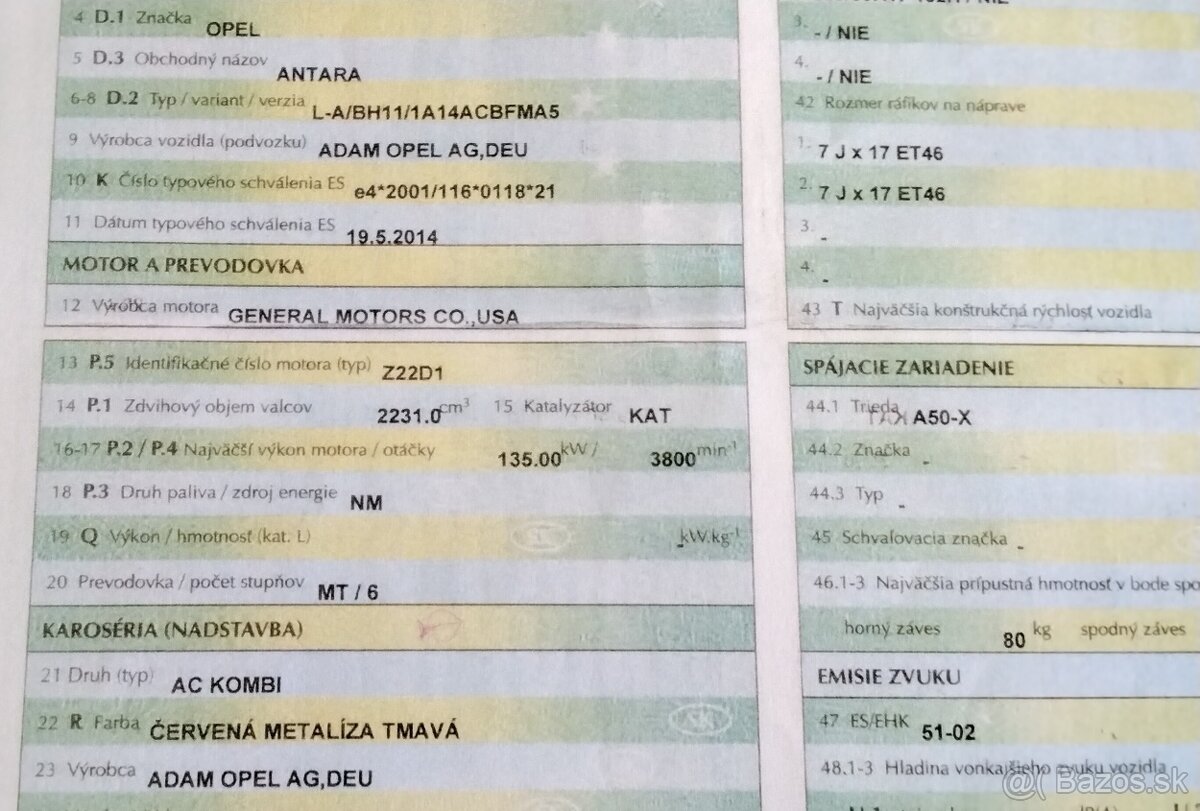 4 D.1 Značka OPEL
5 D.3 Obchodný názov ANTARA
6-8 D.2 Typ / variant / verzia L-A/BH11/1A14ACBFMA5
9 Výrobca vozidla (podvozku) ADAM OPEL AG,DEU
10 K Číslo typového schválenia ES e4*2001/116*0118*21
11 Dátum typového schválenia ES 19.5.2014
MOTOR A PREVODOVKA
12 Výrobca motora GENERAL MOTORS CO.,USA
13 P.5 Identifikačné číslo motora (typ) Z22D1
14 P.1 Zdvihový objem valcov 2231.0 cm³ 15 Katalyzátor KAT
16-17 P.2 / P.4 Najväčší výkon motora / otáčky 135.00 kW / 3800 min⁻¹
18 P.3 Druh paliva / zdroj energie NM
19 Q Výkon / hmotnosť (kat. L) - kW.kg⁻¹
20 Prevodovka / počet stupňov MT / 6
KAROSÉRIA (NADSTAVBA)
21 Druh (typ) AC KOMBI
22 R Farba ČERVENÁ METALÍZA TMAVÁ
23 Výrobca ADAM OPEL AG,DEU
NIE
3. - / NIE
4. - / NIE
42 Rozmer ráfikov na náprave
1. 7 J x 17 ET46
2. 7 J x 17 ET46
3. -
4. -
43 T Najväčšia konštrukčná rýchlosť vozidla
SPÁJACIE ZARIADENIE
44.1 Trieda A50-X
44.2 Značka -
44.3 Typ -
45 Schvaľovacia značka -
46.1-3 Najväčšia prípustná hmotnosť v bode spo
horný záves 80 kg spodný záves
EMISIE ZVUKU
47 ES/EHK 51-02
48.1-3 Hladina vonkajšieho zvuku vozidla
Bazos.sk